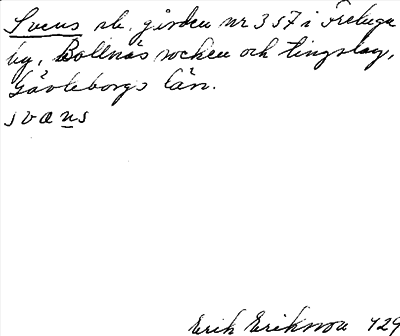 Svens rb. gården nr 3 57 i Freluga
by, Bollnäs socken och tingslag,
Gävleborgs län.
svæns
Erik Eriksson 429